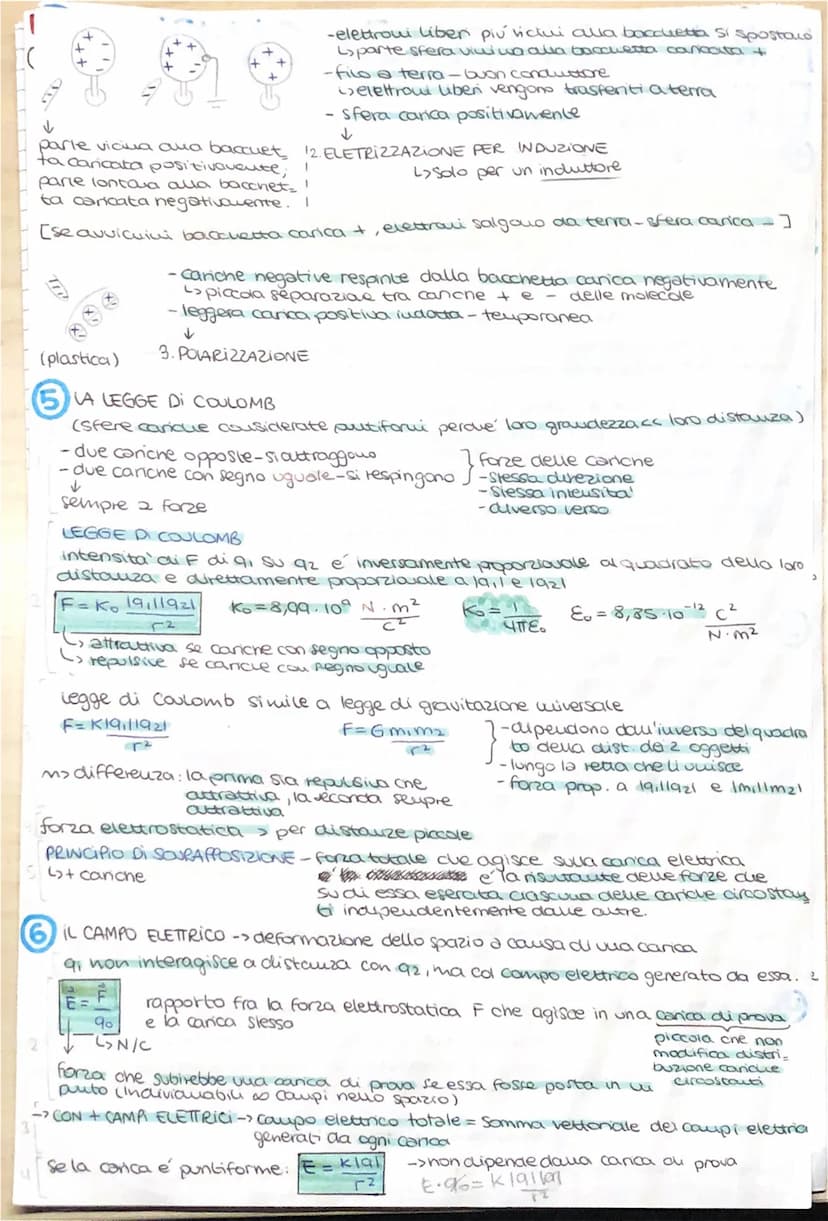 -elettroni liberi più vicini alla bacchetta si spostano
↳parte sfera vicino alla bacchetta caricata +
-filo a terra - buon conduttore
↳elettroni liberi vengono trasferiti a terra
- sfera carica positivamente
↓
parte vicina alla bacchet=
ta caricata positivamente,
parte lontana alla bacchet=
ta caricata negativamente.
2. ELETRIZZAZIONE PER INDUZIONE
↳solo per un induttore
[se avvicini bacchetta carica +, elettroni salgono da terra - sfera carica -]
- cariche negative respinte dalla bacchetta carica negativamente
↳piccola separazione tra cariche + e - delle molecole
- leggera carica positiva indotta - temporanea
↓
(plastica) 3. POLARIZZAZIONE
5 LA LEGGE DI COULOMB
(sfere cariche considerate puntiformi perché loro grandezza << loro distanza)
- due cariche opposte - si attraggono
- due cariche con segno uguale - si respingono
↓
sempre 2 forze
} forze delle cariche
-stessa direzione
-stessa intensità
-diverso verso
LEGGE DI COULOMB
intensità di F di q1 su q2 é inversamente proporzionale al quadrato della loro
distanza e direttamente proporzionale a |q1| e |q2|
F = K₀ |q1||q2| / r² K₀ = 8,99 · 10⁹ N · m² / C² K₀ = 1 / 4πε₀ ε₀ = 8,85 · 10⁻¹² C² / N · m²
↳ attrattiva se cariche con segno opposto
↳ repulsive se cariche con segno uguale
legge di Coulomb simile a legge di gravitazione universale
F = K|q1||q2| / r² F = G m1 m2 / r²
} -dipendono dall'inverso del quadra
to della dist. dei 2 oggetti
-lungo la retta che li unisce
- forza prop. a |q1||q2| e |m1||m2|
~> differenza: la prima sia repulsiva che
attrattiva, la seconda sempre
attrattiva
forza elettrostatica > per distanze piccole
PRINCIPIO DI SOVRAPPOSIZIONE - forza totale che agisce sulla carica elettrica
↳ + cariche
é la risultante delle forze che
su di essa esercita ciascuna delle cariche circostan
ti indipendentemente dalle altre.
6 IL CAMPO ELETTRICO -> deformazione dello spazio a causa di una carica
q1 non interagisce a distanza con q2, ma col campo elettrico generato da essa.
E = F / q₀ rapporto fra la forza elettrostatica F che agisce in una carica di prova
e la carica stesso
↳ N/C
piccola che non
modifica distri=
buzione cariche
circostanti
forza che subirebbe una carica di prova se essa fosse posta in un
punto (individuabili ∞ campi nello spazio)
-> CON + CAMPI ELETTRICI -> campo elettrico totale = somma vettoriale dei campi elettrici
generati da ogni carica
se la carica é puntiforme: E = K|q| / r² -> non dipende dalla carica di prova
E · q₀ = K|q||q| / r²